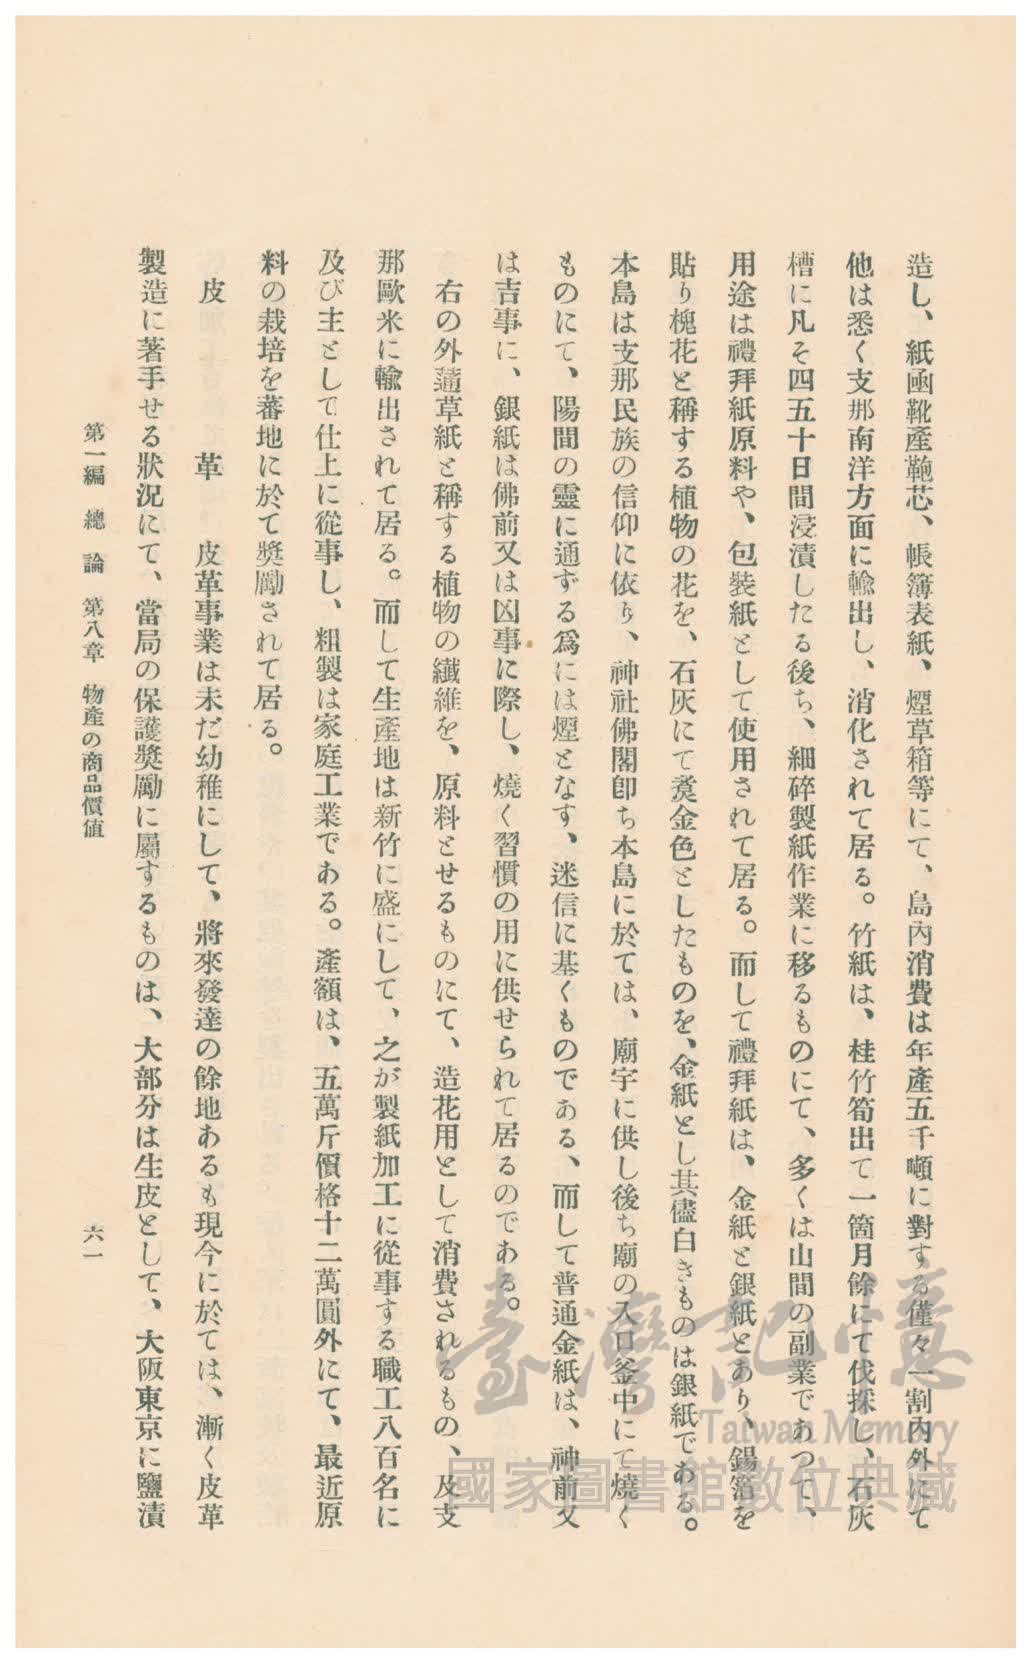 造し、紙凾靴產鞄芯、帳簿表紙、煙草箱等にて、島內消費は年產五千噸に對する僅々一割內外にて
他は悉く支那南洋方面に輸出し、消化されて居る。竹紙は、桂竹筍出て一箇月餘にて伐採し、石灰
槽に凡そ四五十日間浸漬したる後ち、細碎製紙作業に移るものにて、多くは山間の副業であつて、
用途は禮拜紙原料や、包裝紙として使用されて居る。而して禮拜紙は、金紙と銀紙とあり、錫箔を
貼り槐花と稱する植物の花を、石灰にて煑金色としたものを、金紙とし其儘白きものは銀紙である。
本島は支那民族の信仰に依り、神社佛閣卽ち本島に於ては、廟宇に供し後ち廟の入口釜中にて燒く
ものにて、陽間の靈に通ずる爲には煙となす、迷信に基くものである、而して普通金紙は、神前又
は吉事に、銀紙は佛前又は凶事に際し、燒く習慣の用に供せられて居るのである。
右の外蓪草紙と稱する植物の纖維を、原料とせるものにて、造花用として消費されるもの、及支
那歐米に輸出されて居る。而して生產地は新竹に盛にして、之が製紙加工に從事する職工八百名に
及び主として仕上に從事し、粗製は家庭工業である。產額は、五萬斤價格十二萬圓外にて、最近原
料の栽培を蕃地に於て獎勵されて居る。
皮　　革　　皮革事業は未だ幼稚にして、將來發達の餘地あるも現今に於ては、漸く皮革
製造に著手せる狀況にて、當局の保護獎勵に屬するものは、大部分は生皮として、大阪東京に鹽漬
第一編　總　論　第八章　物產の商品價値
六一
臺灣記憶
Taiwan Memory
國家圖書館數位典藏